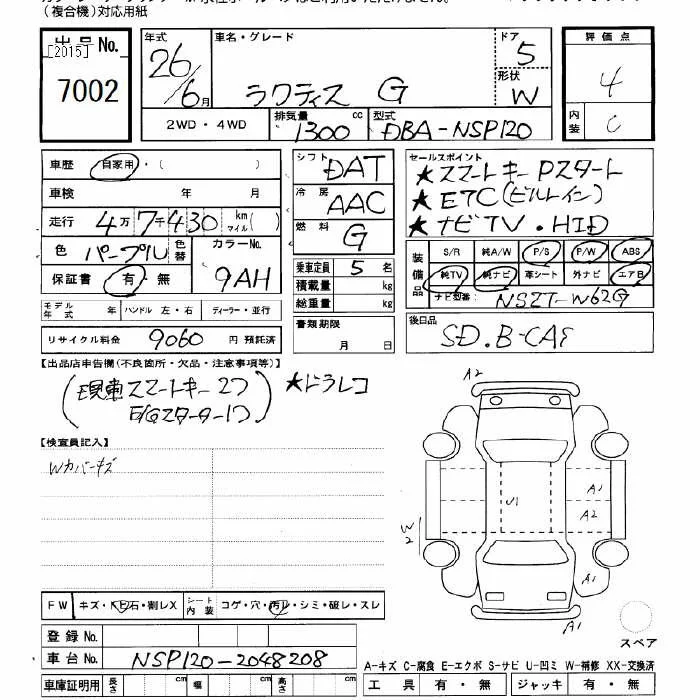 （複合機）対応用紙
出品 No.
[2015]
7002
年式 26/6月
車名・グレード ラクティス G
ドア 5
形状 W
2WD・4WD
排気量 1300 cc
型式 DBA-NSP120
評価点 4
内装 C
車歴 自家用・( )
車検 年 月
走行 4万7千430 km マイル( )
色 パープル 色替
カラーNo. 9AH
保証書 有・無
モデル年式 年 ハンドル 左・右 ディーラー・並行
リサイクル料金 9060 円 預託済
シフト DAT
冷房 AAC
燃料 G
乗車定員 5 名
積載量 kg
総重量 kg
書類期限 月 日
セールスポイント
★スマートキー Pスタート
★ETC(ビルトイン)
★ナビTV・HID
装備品 S/R 純A/W P/S P/W ABS
純TV 純ナビ 革シート 外ナビ エアB
ナビ型番: NSZT-W62G
後日品
SD.B-CAS
【出品店申告欄(不良箇所・欠品・注意事項等)】
(現車スマートキー2つ ★ドラレコ
E/Gスターター1つ)
【検査員記入】
Wカバーキズ
A2
U1
A1
A2
W2
A1
A1
スペア
FW キズ・ヒビ石・割レX シート内装 コゲ・穴・汚レ・シミ・破レ・スレ
登録 No.
車台 No. NSP120-2048208
車庫証明用 長さ cm 幅 cm 高さ cm
A-キズ C-腐食 E-エクボ S-サビ U-凹ミ W-補修 XX-交換済
工具 有・無 ジャッキ 有・無